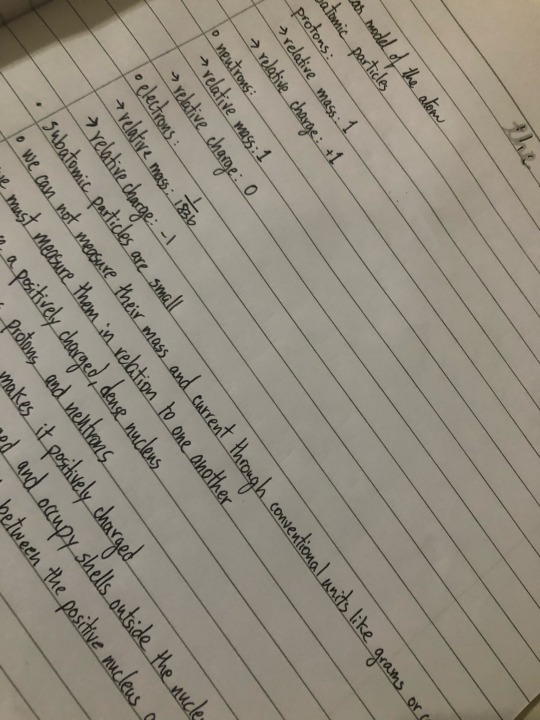 the
as model of the atom
atomic particles
protons:
→ relative mass: 1
→ relative charge: +1
• neutrons:
→ relative mass: 1
→ relative charge: 0
• electrons:
→ relative mass: 1/1836
→ relative charge: -1
• subatomic particles are small
• we can not measure their mass and current through conventional units like grams or
must measure them in relation to one another
a positively charged, dense nucleus
protons and neutrons
makes it positively charged
and occupy shells outside the
between the positive nucleus